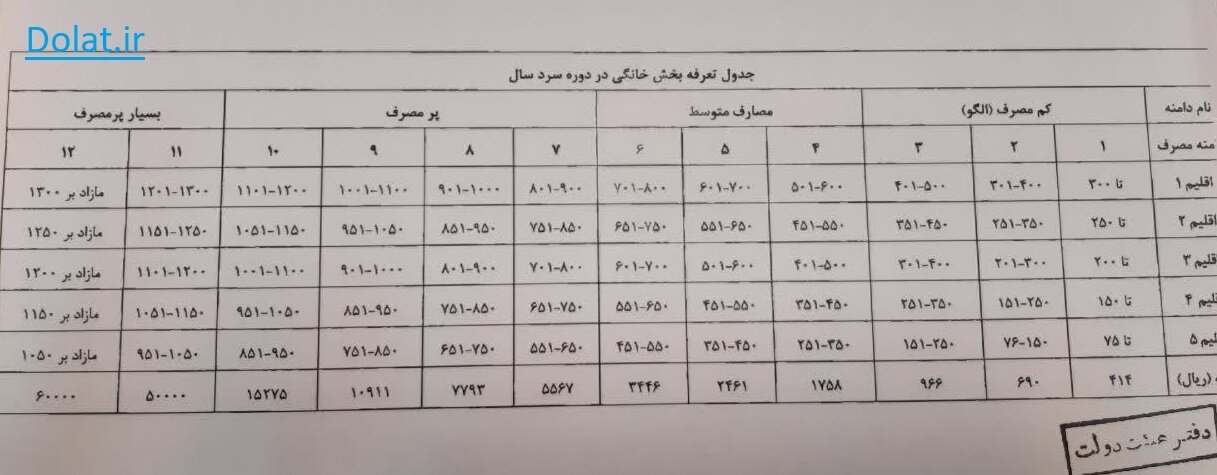 Dolat.ir
جدول تعرفه بخش خانگی در دوره سرد سال
نام دامنه کم مصرف (الگو) مصارف متوسط پر مصرف بسیار پرمصرف
منه مصرف ۱ ۲ ۳ ۴ ۵ ۶ ۷ ۸ ۹ ۱۰ ۱۱ ۱۲
اقلیم ۱ تا ۳۰۰ ۳۰۱-۴۰۰ ۴۰۱-۵۰۰ ۵۰۱-۶۰۰ ۶۰۱-۷۰۰ ۷۰۱-۸۰۰ ۸۰۱-۹۰۰ ۹۰۱-۱۰۰۰ ۱۰۰۱-۱۱۰۰ ۱۱۰۱-۱۲۰۰ ۱۲۰۱-۱۳۰۰ مازاد بر ۱۳۰۰
اقلیم ۲ تا ۲۵۰ ۲۵۱-۳۵۰ ۳۵۱-۴۵۰ ۴۵۱-۵۵۰ ۵۵۱-۶۵۰ ۶۵۱-۷۵۰ ۷۵۱-۸۵۰ ۸۵۱-۹۵۰ ۹۵۱-۱۰۵۰ ۱۰۵۱-۱۱۵۰ ۱۱۵۱-۱۲۵۰ مازاد بر ۱۲۵۰
قلیم ۳ تا ۲۰۰ ۲۰۱-۳۰۰ ۳۰۱-۴۰۰ ۴۰۱-۵۰۰ ۵۰۱-۶۰۰ ۶۰۱-۷۰۰ ۷۰۱-۸۰۰ ۸۰۱-۹۰۰ ۹۰۱-۱۰۰۰ ۱۰۰۱-۱۱۰۰ ۱۱۰۱-۱۲۰۰ مازاد بر ۱۲۰۰
لیم ۴ تا ۱۵۰ ۱۵۱-۲۵۰ ۲۵۱-۳۵۰ ۳۵۱-۴۵۰ ۴۵۱-۵۵۰ ۵۵۱-۶۵۰ ۶۵۱-۷۵۰ ۷۵۱-۸۵۰ ۸۵۱-۹۵۰ ۹۵۱-۱۰۵۰ ۱۰۵۱-۱۱۵۰ مازاد بر ۱۱۵۰
لیم ۵ تا ۷۵ ۷۶-۱۵۰ ۱۵۱-۲۵۰ ۲۵۱-۳۵۰ ۳۵۱-۴۵۰ ۴۵۱-۵۵۰ ۵۵۱-۶۵۰ ۶۵۱-۷۵۰ ۷۵۱-۸۵۰ ۸۵۱-۹۵۰ ۹۵۱-۱۰۵۰ مازاد بر ۱۰۵۰
(ریال) ۴۱۴ ۶۹۰ ۹۶۶ ۱۷۵۸ ۲۴۶۱ ۳۴۴۶ ۵۵۶۷ ۷۷۹۳ ۱۰۹۱۱ ۱۵۲۷۵ ۵۰۰۰۰ ۶۰۰۰۰
دفتر هیئت دولت